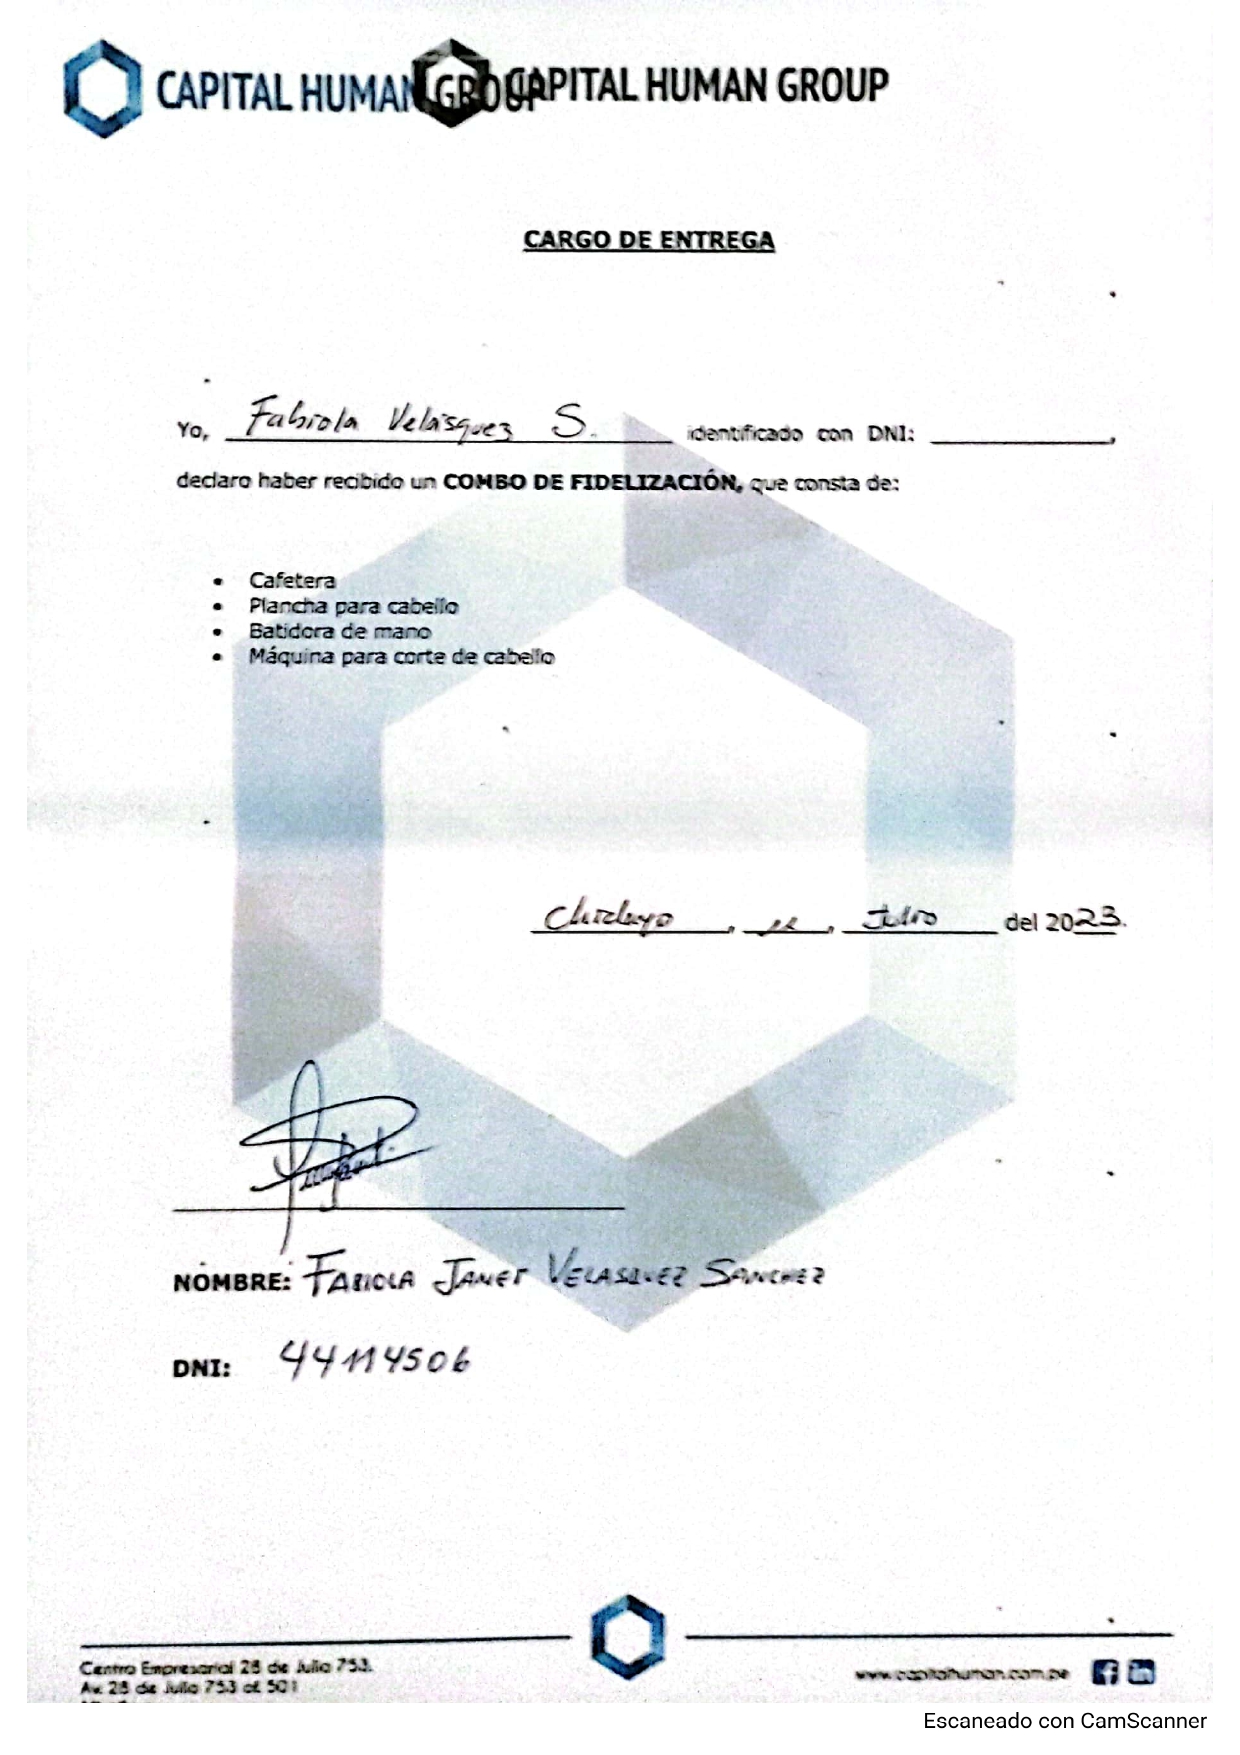 CAPITAL HUMAN GROUP CAPITAL HUMAN GROUP
CARGO DE ENTREGA
Yo, Fabiola Velásquez S. identificado con DNI: ,
declaro haber recibido un COMBO DE FIDELIZACIÓN, que consta de:
• Cafetera
• Plancha para cabello
• Batidora de mano
• Máquina para corte de cabello
Chiclayo, , Julio del 2023.
NOMBRE: FABIOLA JANET VELASQUEZ SANCHEZ
DNI: 44114506
Centro Empresarial 28 de Julio 753.
Av. 28 de Julio 753 of. 501
www.capitalhuman.com.pe
Escaneado con CamScanner